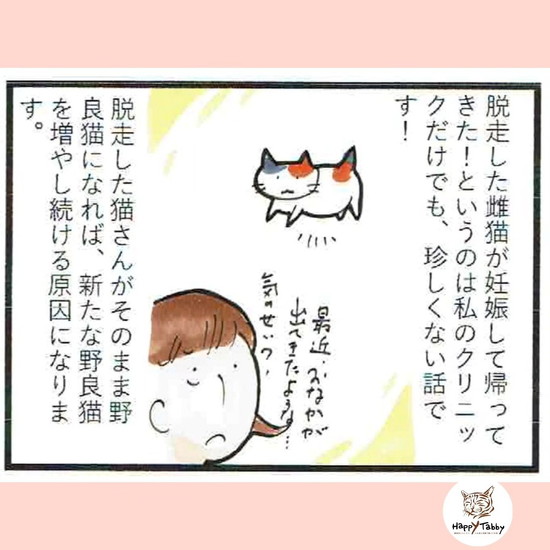 脱走した雌猫が妊娠して帰って
きた！というのは私のクリニッ
クだけでも、珍しくない話で
す！
最近、おなかが
出てきたような…
気のせいっ！
脱走した猫さんがそのまま野
良猫になれば、新たな野良猫
を増やし続ける原因になりま
す。
Happy Tabby